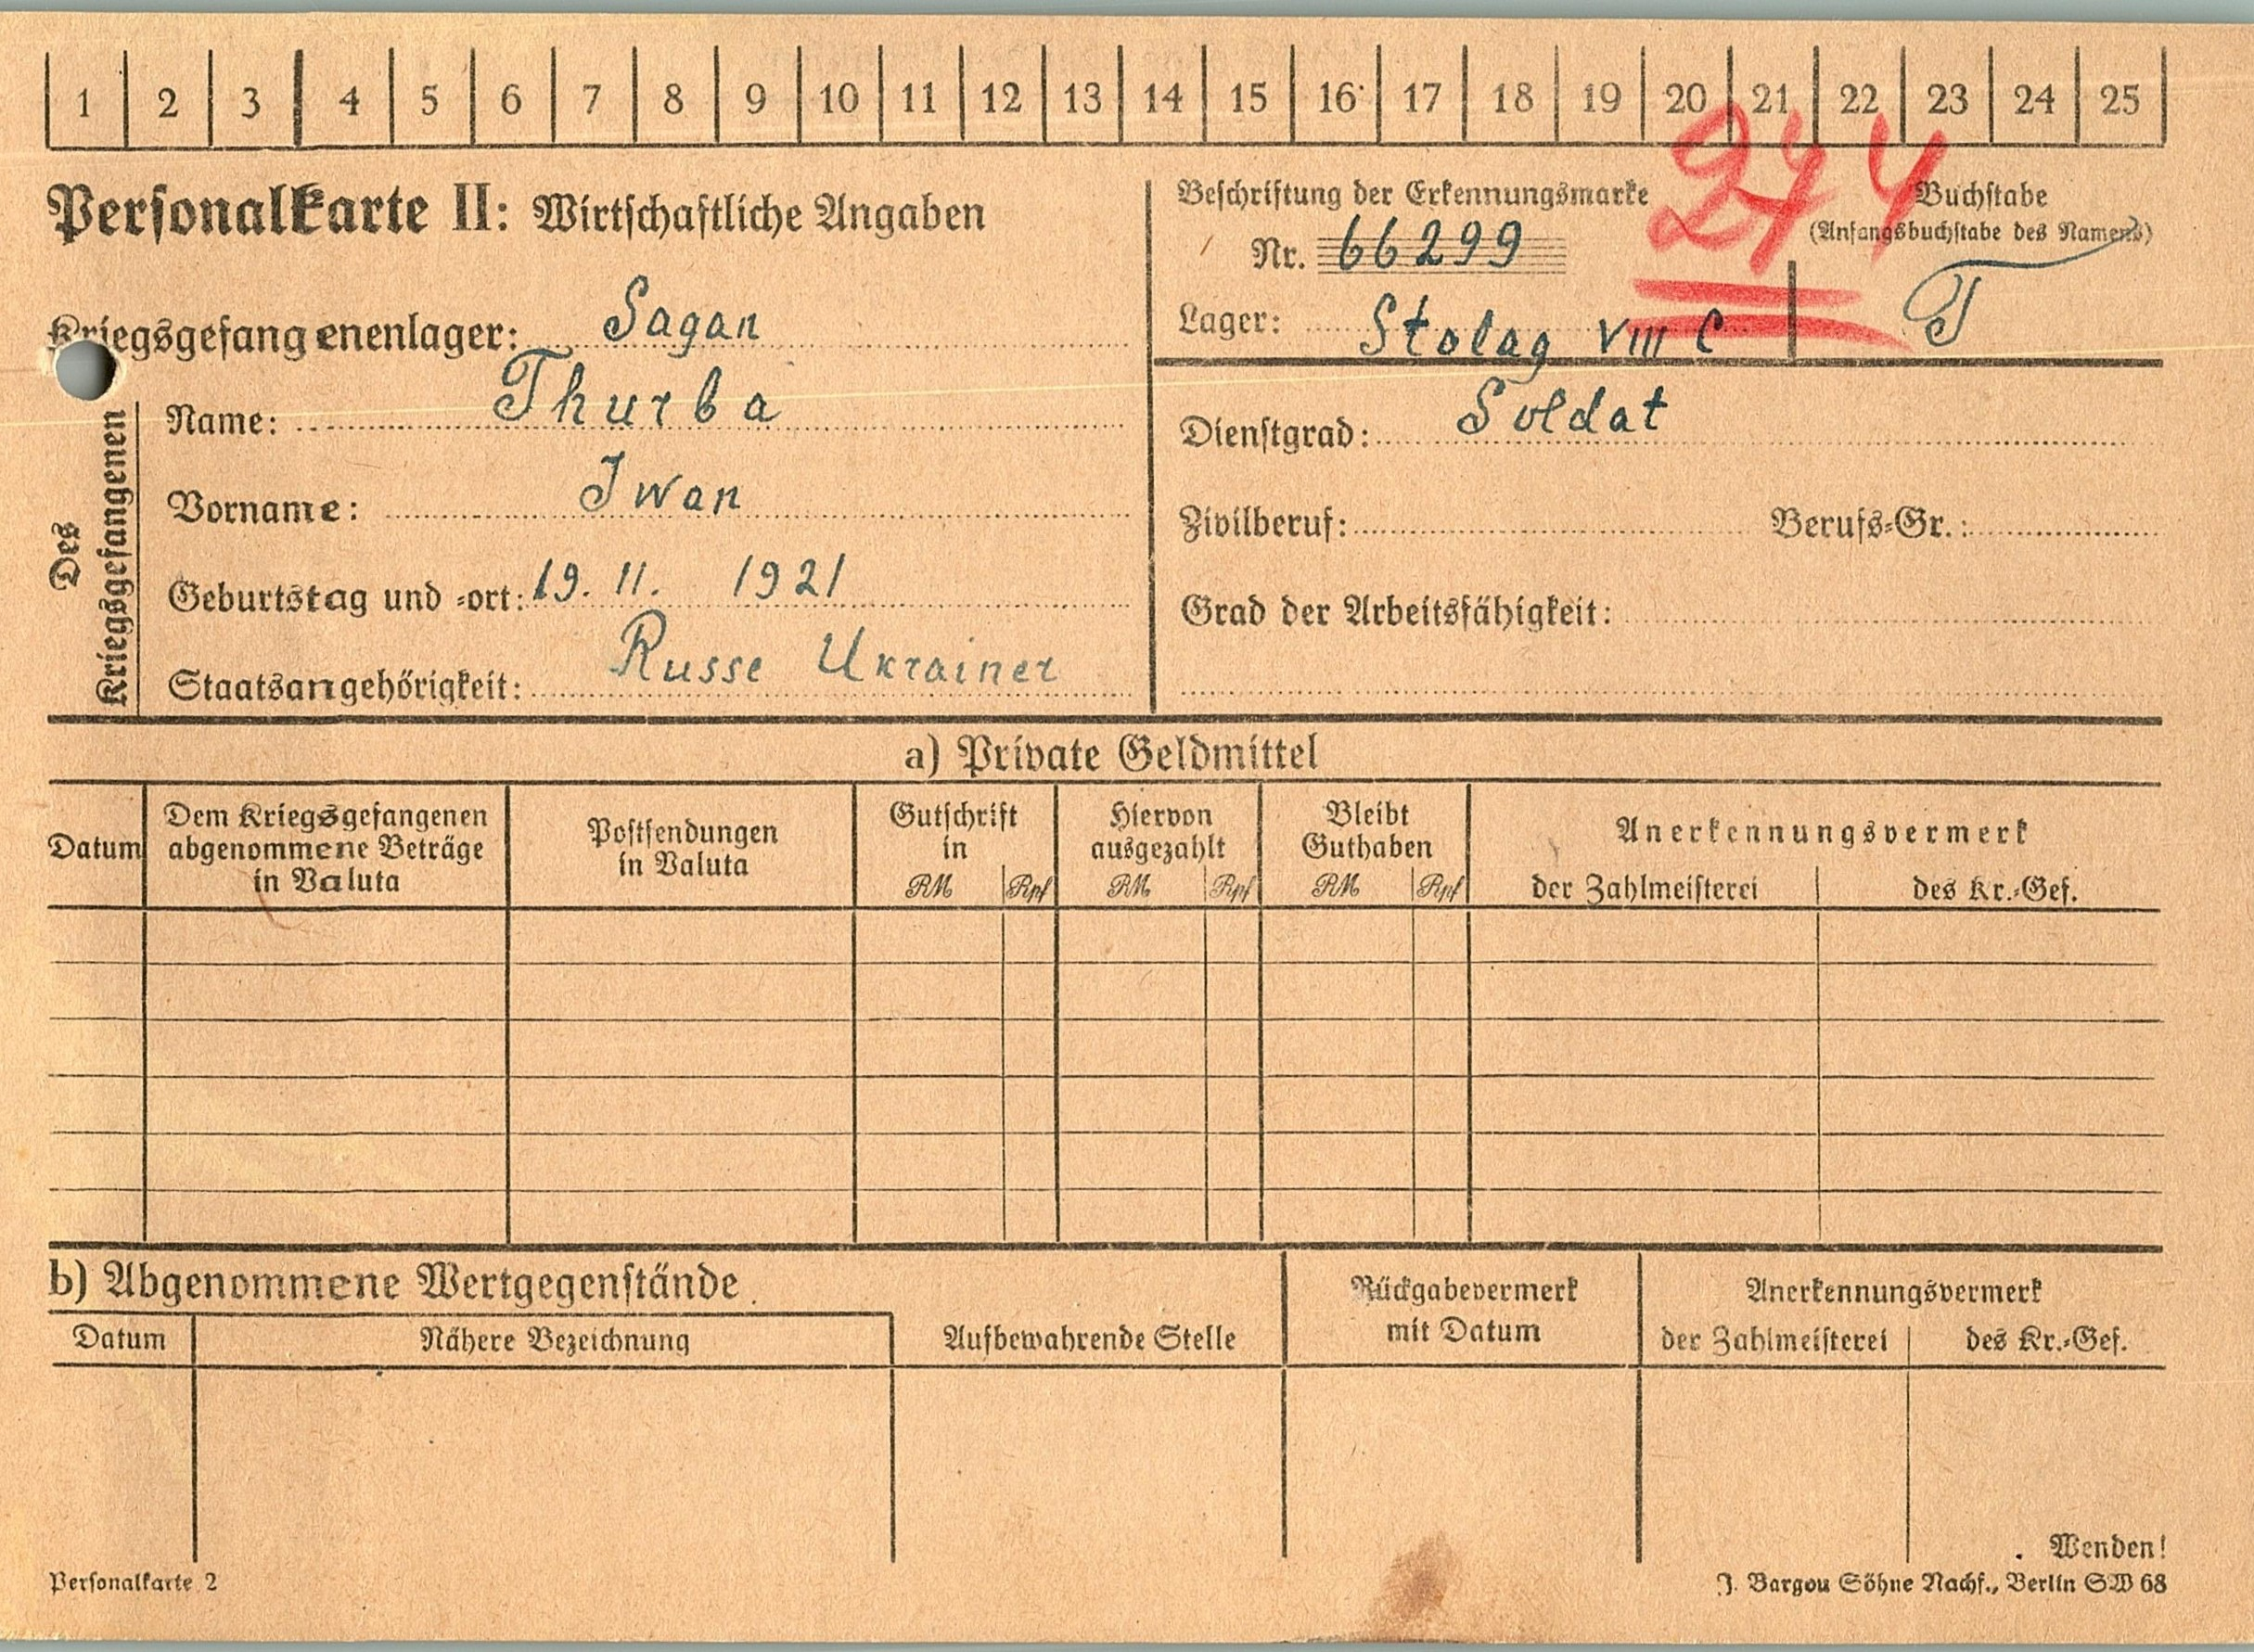 1 2 3 4 5 6 7 8 9 10 11 12 13 14 15 16 17 18 19 20 21 22 23 24 25
244
Personalkarte II: Wirtschaftliche Angaben
Beschriftung der Erkennungsmarke
Nr. 66299
Lager: Stalag VIII C
Buchstabe
(Anfangsbuchstabe des Namens)
T
Kriegsgefangenenlager: Sagan
Des
Kriegsgefangenen
Name: Thurba
Vorname: Iwan
Geburtstag und -ort: 19. 11. 1921
Staatsangehörigkeit: Russe Ukrainer
Dienstgrad: Soldat
Zivilberuf: Berufs-Gr.:
Grad der Arbeitsfähigkeit:
a) Private Geldmittel
Datum
Dem Kriegsgefangenen
abgenommene Beträge
in Valuta
Postsendungen
in Valuta
Gutschrift
in
RM Rpf
Hiervon
ausgezahlt
RM Rpf
Bleibt
Guthaben
RM Rpf
Anerkennungsvermerk
der Zahlmeisterei des Kr.-Gef.
b) Abgenommene Wertgegenstände
Datum Nähere Bezeichnung
Aufbewahrende Stelle
Rückgabevermerk
mit Datum
Anerkennungsvermerk
der Zahlmeisterei des Kr.-Gef.
Wenden!
Personalkarte 2
J. Bargou Söhne Nachf., Berlin SW 68